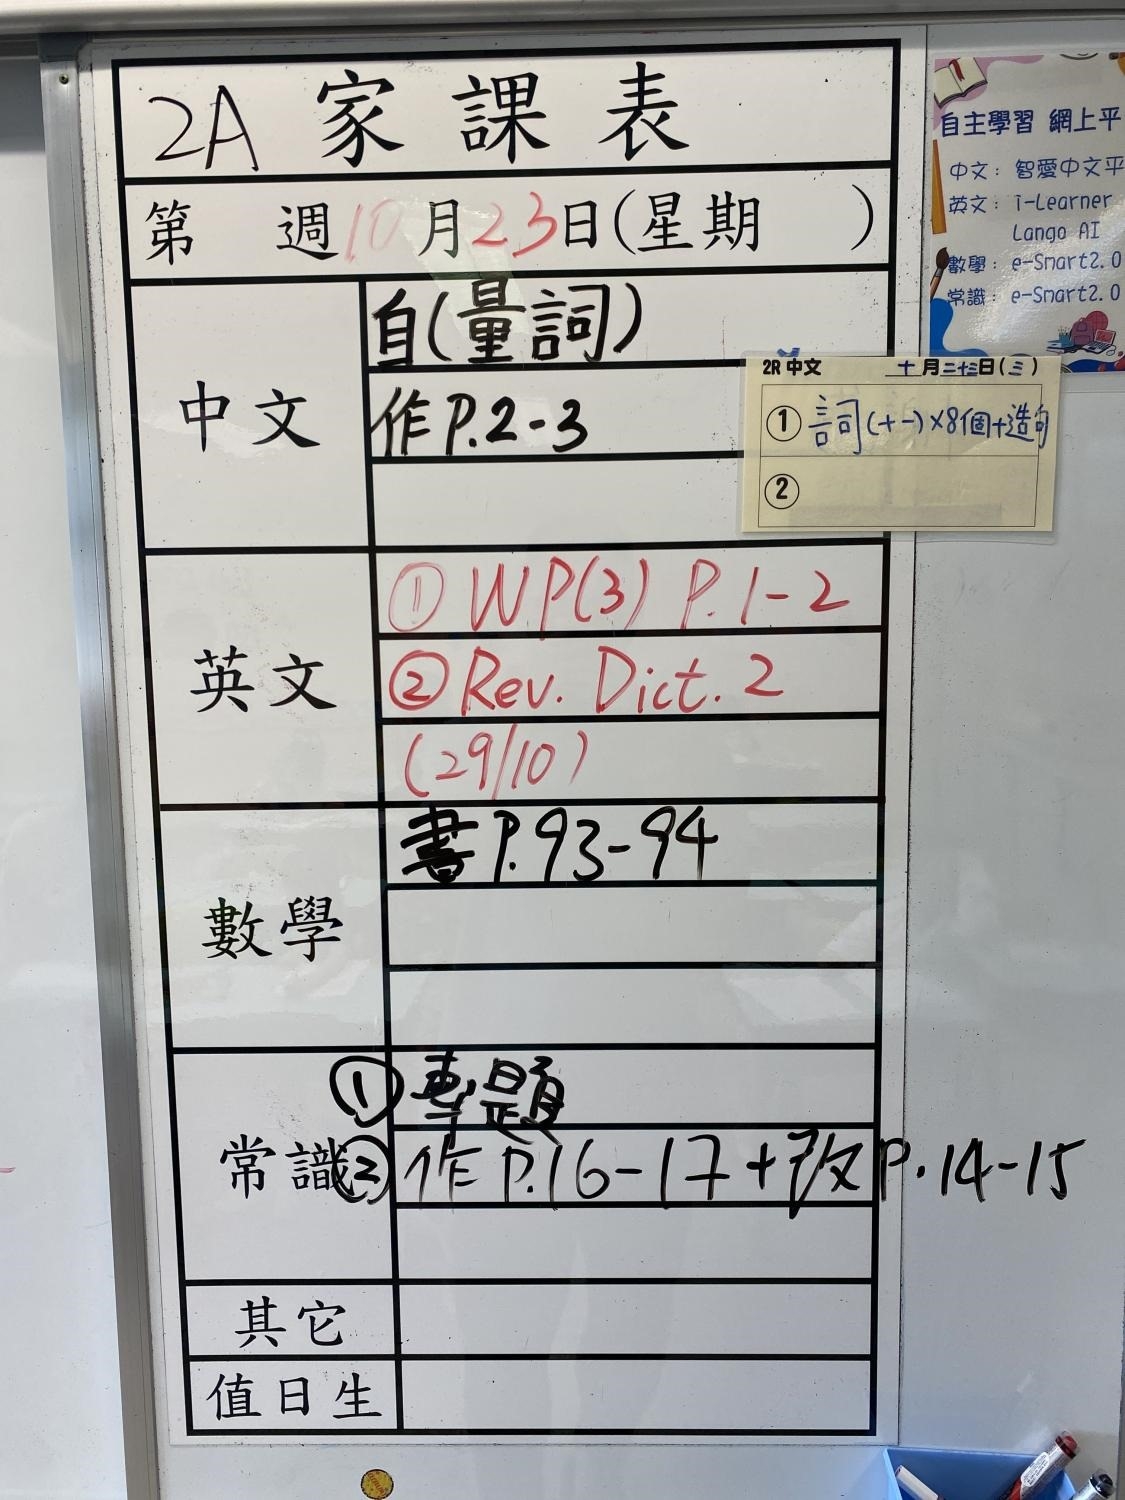 2A 家課表
第 週10月23日(星期 )
中文
自(量詞)
作P.2-3
英文
① WP(3) P.1-2
② Rev. Dict. 2
(29/10)
數學
書 P.93-94
常識
① 專題
② 作 P.16-17+改P.14-15
其它
值日生
2R 中文 十月二十三日(三)
① 詞(十一)×8個+造句
②
自主學習 網上平
中文: 智愛中文平
英文: i-Learner
Lango AI
數學: e-Smart2.0
常識: e-Smart2.0